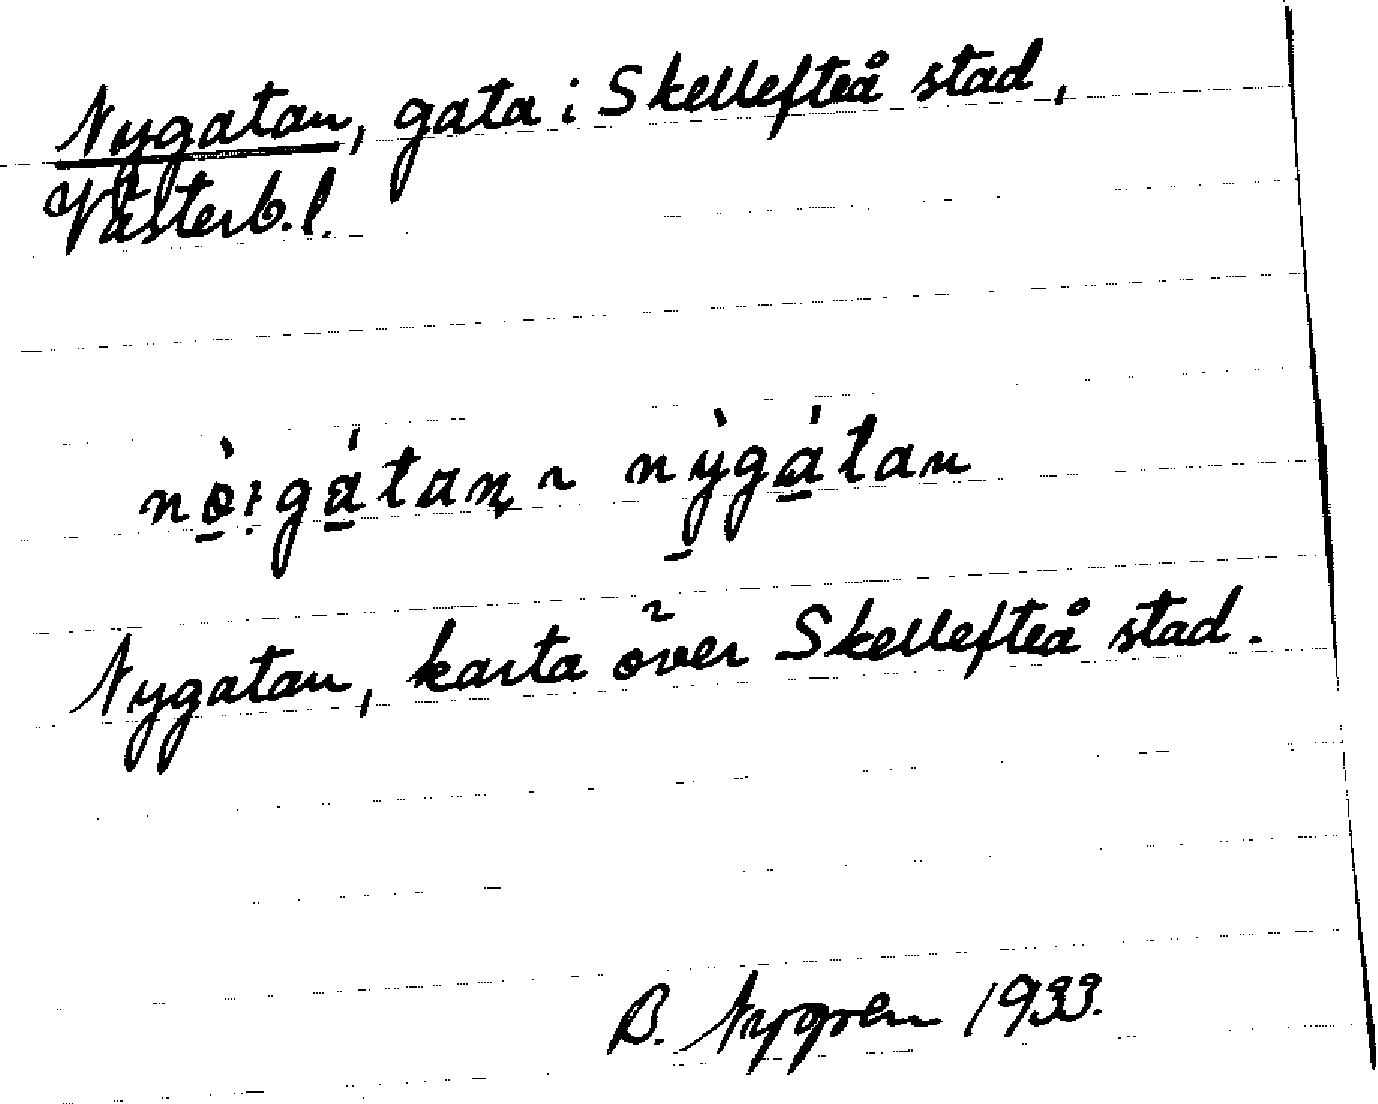 Nygatan, gata i Skellefteå stad,
Västerb.l.
nò̱i̯gá̱tan̡ ~ nỳ̱gá̱tan
Nygatan, karta över Skellefteå stad.
B. Nygren 1933.